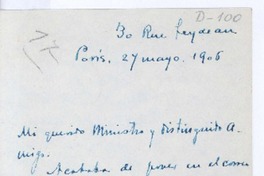 D-100
30 Rue Feydeau
París, 27 mayo, 1906
Mi querido Ministro y distinguido A-
migo.
Acababa de poner en el correo